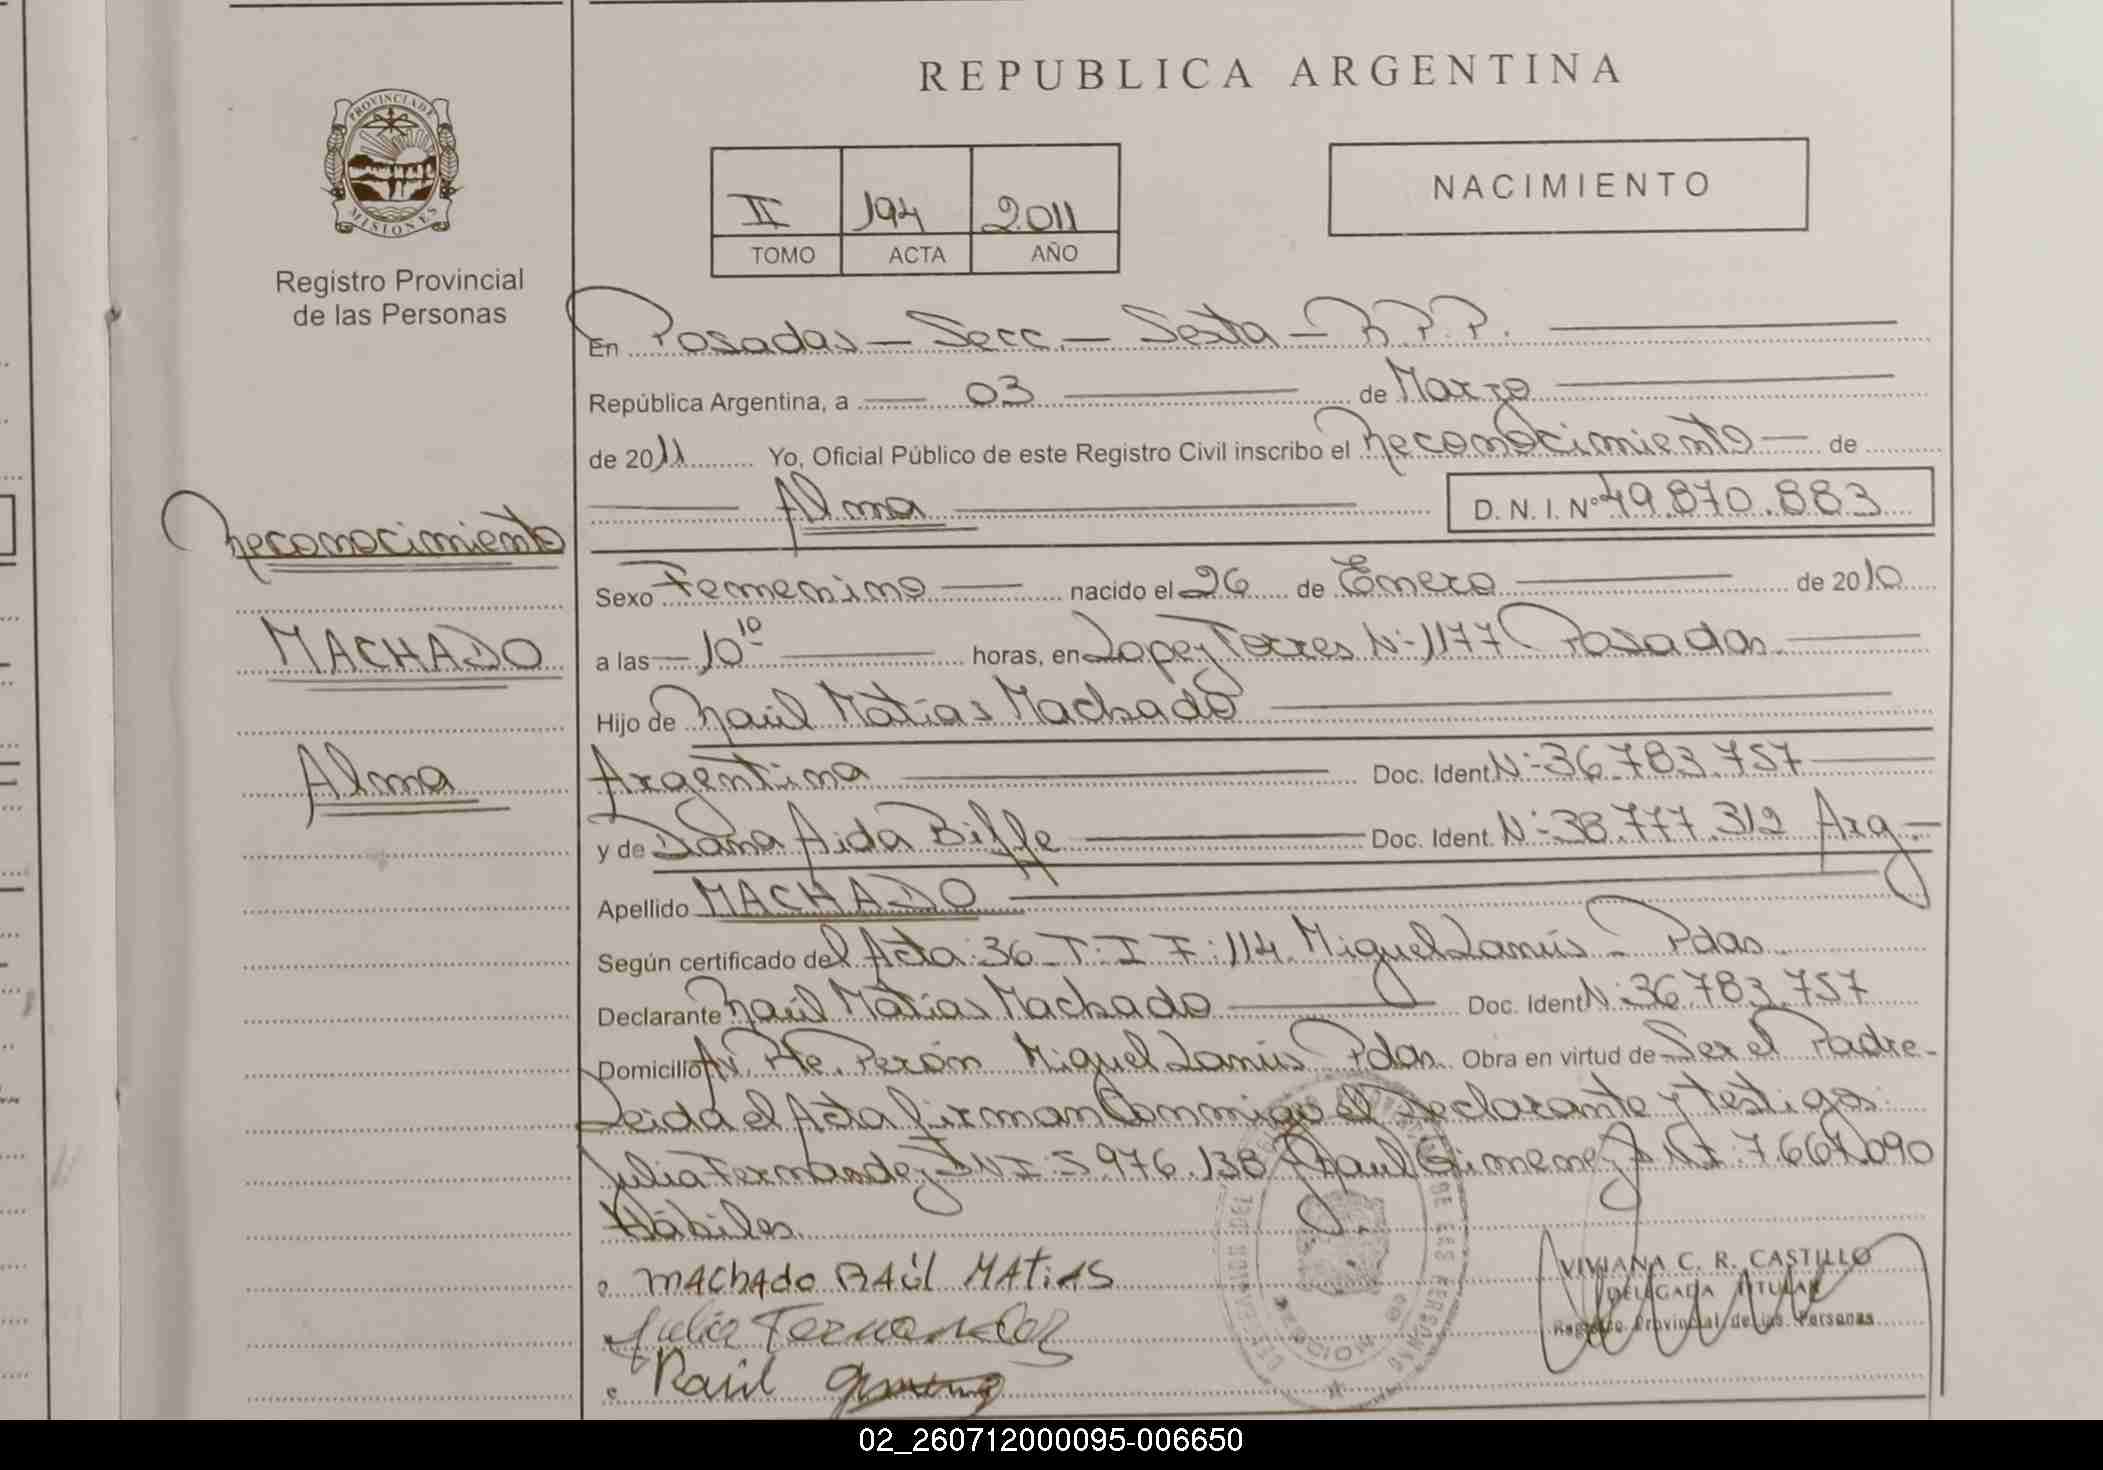 REPUBLICA ARGENTINA
PROVINCIA DE
MISIONES
Registro Provincial
de las Personas
II 194 2011
TOMO ACTA AÑO
NACIMIENTO
En Posadas - Secc - Sexta - R.P.P.
República Argentina, a 03 de Marzo
de 2011 Yo, Oficial Público de este Registro Civil inscribo el Reconocimiento de
Alma D.N.I. Nº 49.870.883
Reconocimiento
MACHADO
Alma
Sexo Femenino nacido el 26 de Enero de 2010
a las 10 10 horas, en Lopez Torres Nº 1177 Posadas
Hijo de Raúl Matías Machado
Argentina Doc. Ident. Nº 36.783.757
y de Dana Aida Biffe Doc. Ident. Nº 38.777.312 Arg.
Apellido MACHADO
Según certificado del Acta: 36 T: I F: 114 Miguel Lanús - Pdas
Declarante Raúl Matías Machado Doc. Ident Nº 36.783.757
Domicilio Av. Pte. Perón Miguel Lanús Pdas. Obra en virtud de Ser el Padre -
Leida el Acta firman Conmigo el Declarante y testigos
Julia Fernandez DNI: 5.976.138 Raul Gimenez DNI: 7.667.090
Hábiles
MAChAdo RAúl MATiAS
Julia Fernandez
Raúl
VIVIANA C. R. CASTILLO
DELEGADA TITULAR
Registro Provincial de las Personas
DE LAS PERSONAS
02_260712000095-006650